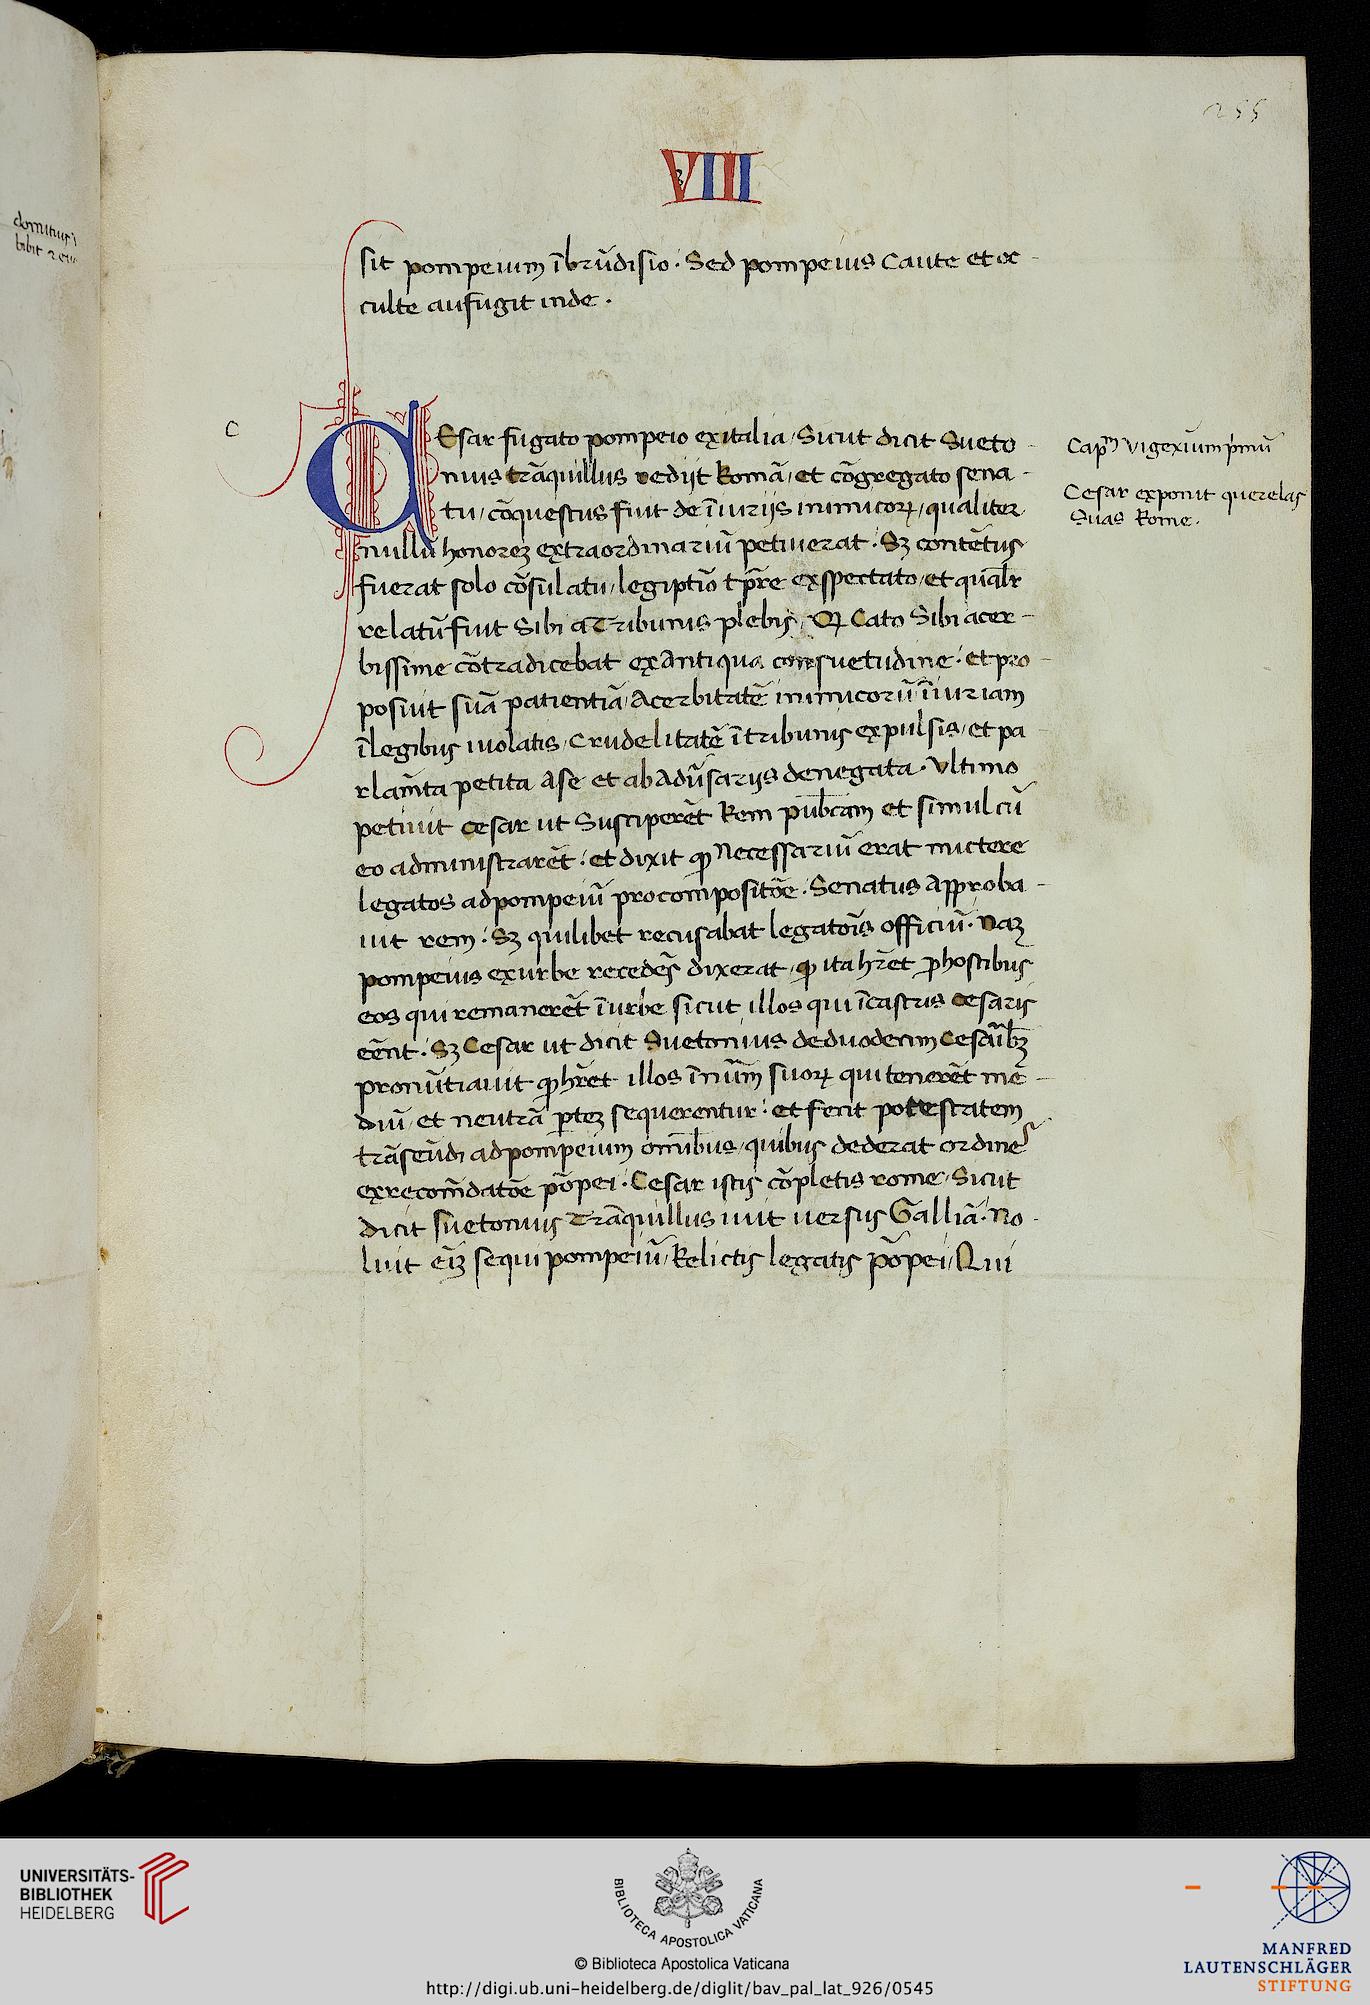 255
VIII
sit pompeium ī brūdisio. Sed pompeius caute et oc-
culte aufugit inde.
c
CEsar fugato pompeio ex italia, Sicut dicit Sueto-
nius trāquillus rediit Romā, et cōgregato sena-
tu, cōquestus fuit de īiuriis inimicoꝝ, qualiter
nullū honoreꝫ extraordinariū petiuerat. Sꝫ contētus
fuerat solo cōsulatu, legiptīo tp̄re exspectato, et qual̄r
relatū fuit Sibi a Tribunis plebis, Cato Sibi acer-
bissime cōtradicebat ex antiqua consuetudine. et pro-
posuit suā patientiā, Acerbitatē inimicorū, īiuriam
ī legibus uiolatis, Crudelitatē ī tribunis expulsis, et pa-
rlam̄ta petita a se et ab adūsariis denegata. Vltimo
petiuit cesar ut Susciperēt Rem pub̄cam et simul cū
eo administrarēt. et dixit ꝙ Necessariū erat mictere
legatos ad pompeiū pro compositōe. Senatus Approba-
uit rem. Sꝫ quilibet recusabat legatōis officiū. Naꝫ
pompeius ex urbe recedēs dixerat, ꝙ ita hr̄et ꝓ hostibus
eos qui remanerēt ī urbe sicut illos qui ī castris cesaris
eēnt. Sꝫ Cesar ut dicit Suetonius de duodecim Cesaribꝫ
pronūtiauit ꝙ hr̄et illos ī nūm suoꝝ qui tenerēt me-
diū, et neutrā ꝑteꝫ sequerentur. et fecit potestatem
trāseūdi ad pompeium omībus, quibus dederat ordinē
ex recom̄datōe pōpei. Cesar istis cōpletis rome, Sicut
dicit suetonius Trāquillus iuit uersus Galliā. No-
luit eīꝫ sequi pompeiū, Relictis legatis pōpei, Qui
Capm̄ vigexium pmū
Cesar exponit querelas
Suas Rome.
domitius
bibit
UNIVERSITÄTS-
BIBLIOTHEK
HEIDELBERG
BIBLIOTECA APOSTOLICA VATICANA
© Biblioteca Apostolica Vaticana
http://digi.ub.uni-heidelberg.de/diglit/bav_pal_lat_926/0545
MANFRED
LAUTENSCHLÄGER
STIFTUNG